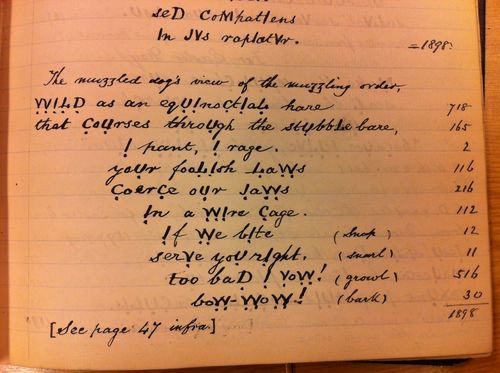 seD CoMpatIens
In JVs raptatVr. =1898.
The muzzled dog's view of the muzzling order,
WILD as an eqUInoCtIaL hare 718
that CoUrses throUgh the stUbbLe bare, 165
I pant, I rage. 2
yoUr fooLIsh LaWs 116
CoerCe oUr JaWs 216
In a WIre Cage. 112
If We bIte (snap) 12
serVe yoU rIght. (snarl) 11
too baD I VoW! (growl) 516
boW-WoW! (bark) 30
1898
[See page 47 infra.]